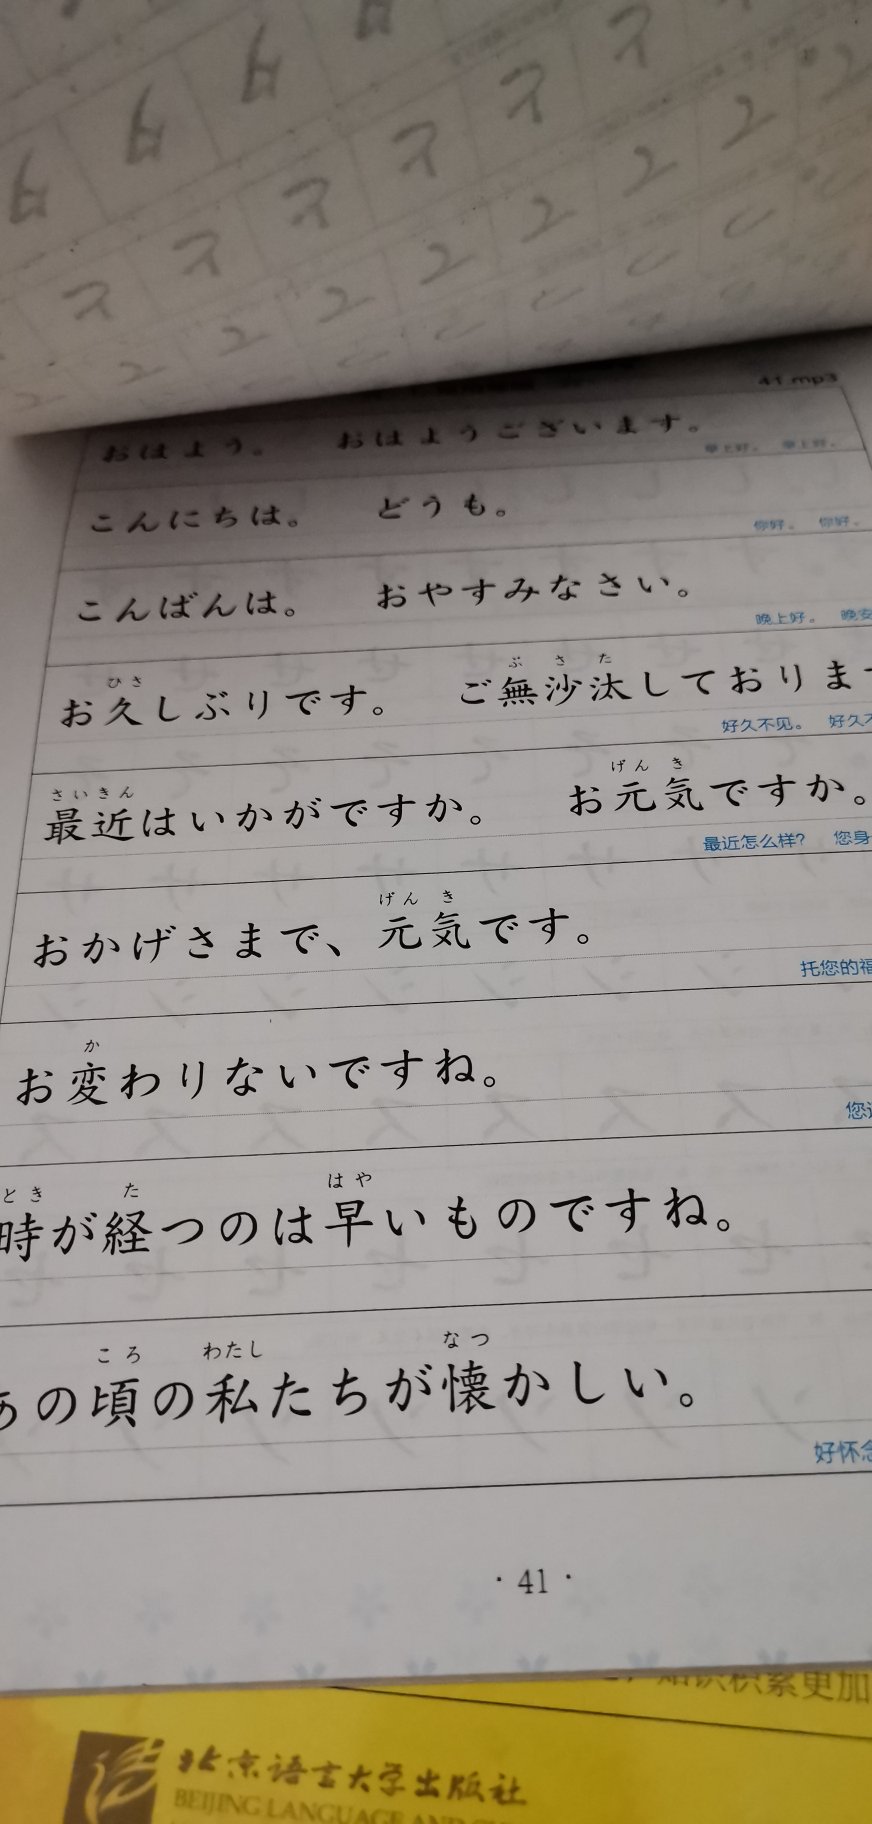 41.mp3
おはよう。 おはようございます。
早上好。 早上好。
こんにちは。 どうも。
你好。 你好。
こんばんは。 おやすみなさい。
晚上好。 晚安
ひさ ぶさた
お久しぶりです。 ご無沙汰しておりま
好久不见。 好久不
さいきん げんき
最近はいかがですか。 お元気ですか。
最近怎么样? 您身
げんき
おかげさまで、元気です。
托您的福
か
お変わりないですね。
您
とき た はや
時が経つのは早いものですね。
ころ わたし なつ
あの頃の私たちが懐かしい。
好怀念
·41·
知识积累更加
北京语言大学出版社
BEIJING LANGUAGE AND